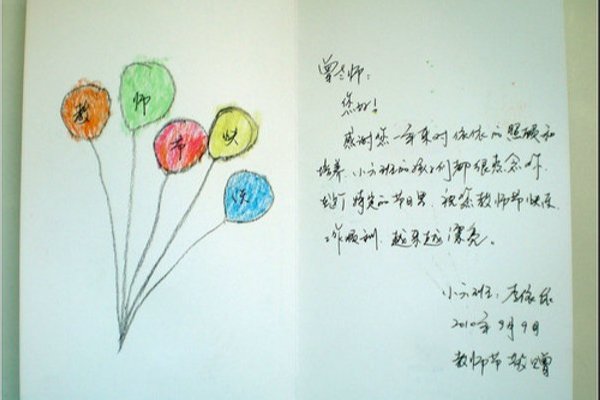 教
师
节
快
乐
曾老师：
您好！
感谢您一年来对依依的照顾和
培养。小六班的孩子们都很想念你。
在这个特别的节日里，祝您教师节快乐
工作顺利，越来越漂亮。
小六班：李依
2010年9月9日
教师节 敬赠